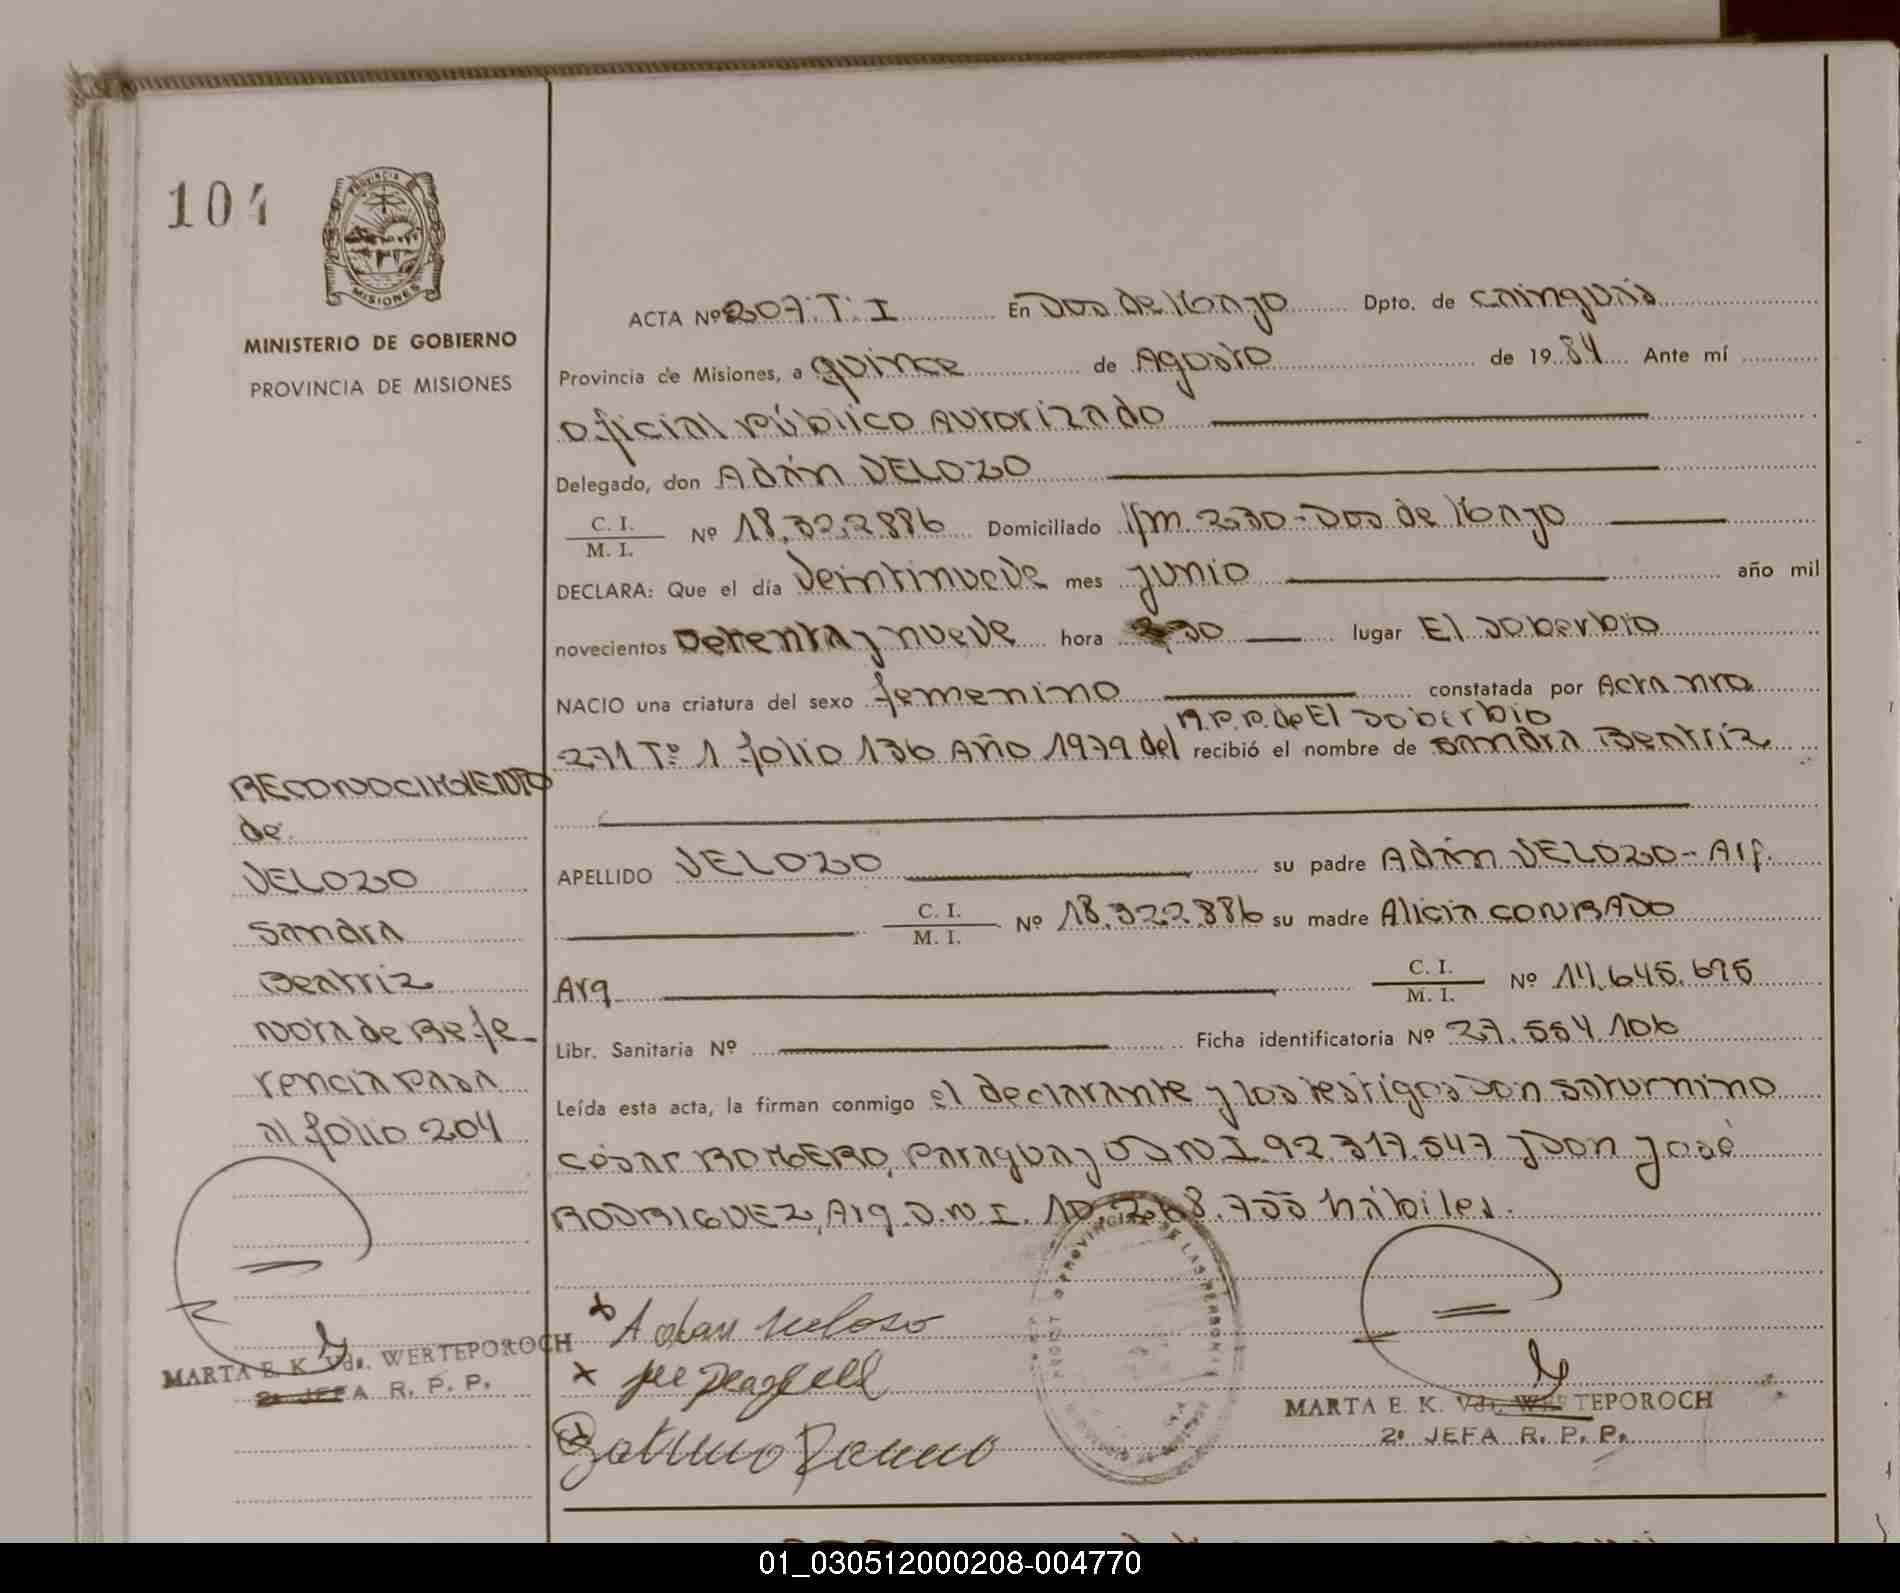 104
PROVINCIA DE
MISIONES
MINISTERIO DE GOBIERNO
PROVINCIA DE MISIONES
ACTA Nº 207. T. I En Dos de Mayo Dpto. de Cainguás
Provincia de Misiones, a quince de Agosto de 1984 Ante mí
Oficial Público Autorizado
Delegado, don Adán VELOZO
C. I.
M. I. Nº 18.322.886 Domiciliado Km 230 - Dos de Mayo
DECLARA: Que el día veintinueve mes junio año mil
novecientos setenta y nueve hora 30 lugar El Soberbio
NACIO una criatura del sexo femenino constatada por Acta nro
R.P.P. de El Soberbio
271 Tº 1 folio 136 Año 1979 del recibió el nombre de Sandra Beatríz
APELLIDO VELOZO su padre Adán VELOZO - Arg.
C. I.
M. I. Nº 18.322.886 su madre Alicia CONRADO
Arg C. I.
M. I. Nº 14.645.695
Libr. Sanitaria Nº Ficha identificatoria Nº 27.554.106
Leída esta acta, la firman conmigo el declarante y los testigos Don Saturnino
César ROMERO, Paraguayo D.N.I. 92.317.547 y Don José
RODRIGUEZ, Arg. D.N.I. 10.268.755 hábiles.
RECONOCIMIENTO
de
VELOZO
Sandra
Beatriz
Nota de Refe-
rencia pasa
al folio 204
MARTA E. K. Vda. WERTEPOROCH
2ª JEFA R. P. P.
Adan Veloso
MARTA E. K. Vda. WERTEPOROCH
2ª JEFA R. P. P.
01_030512000208-004770